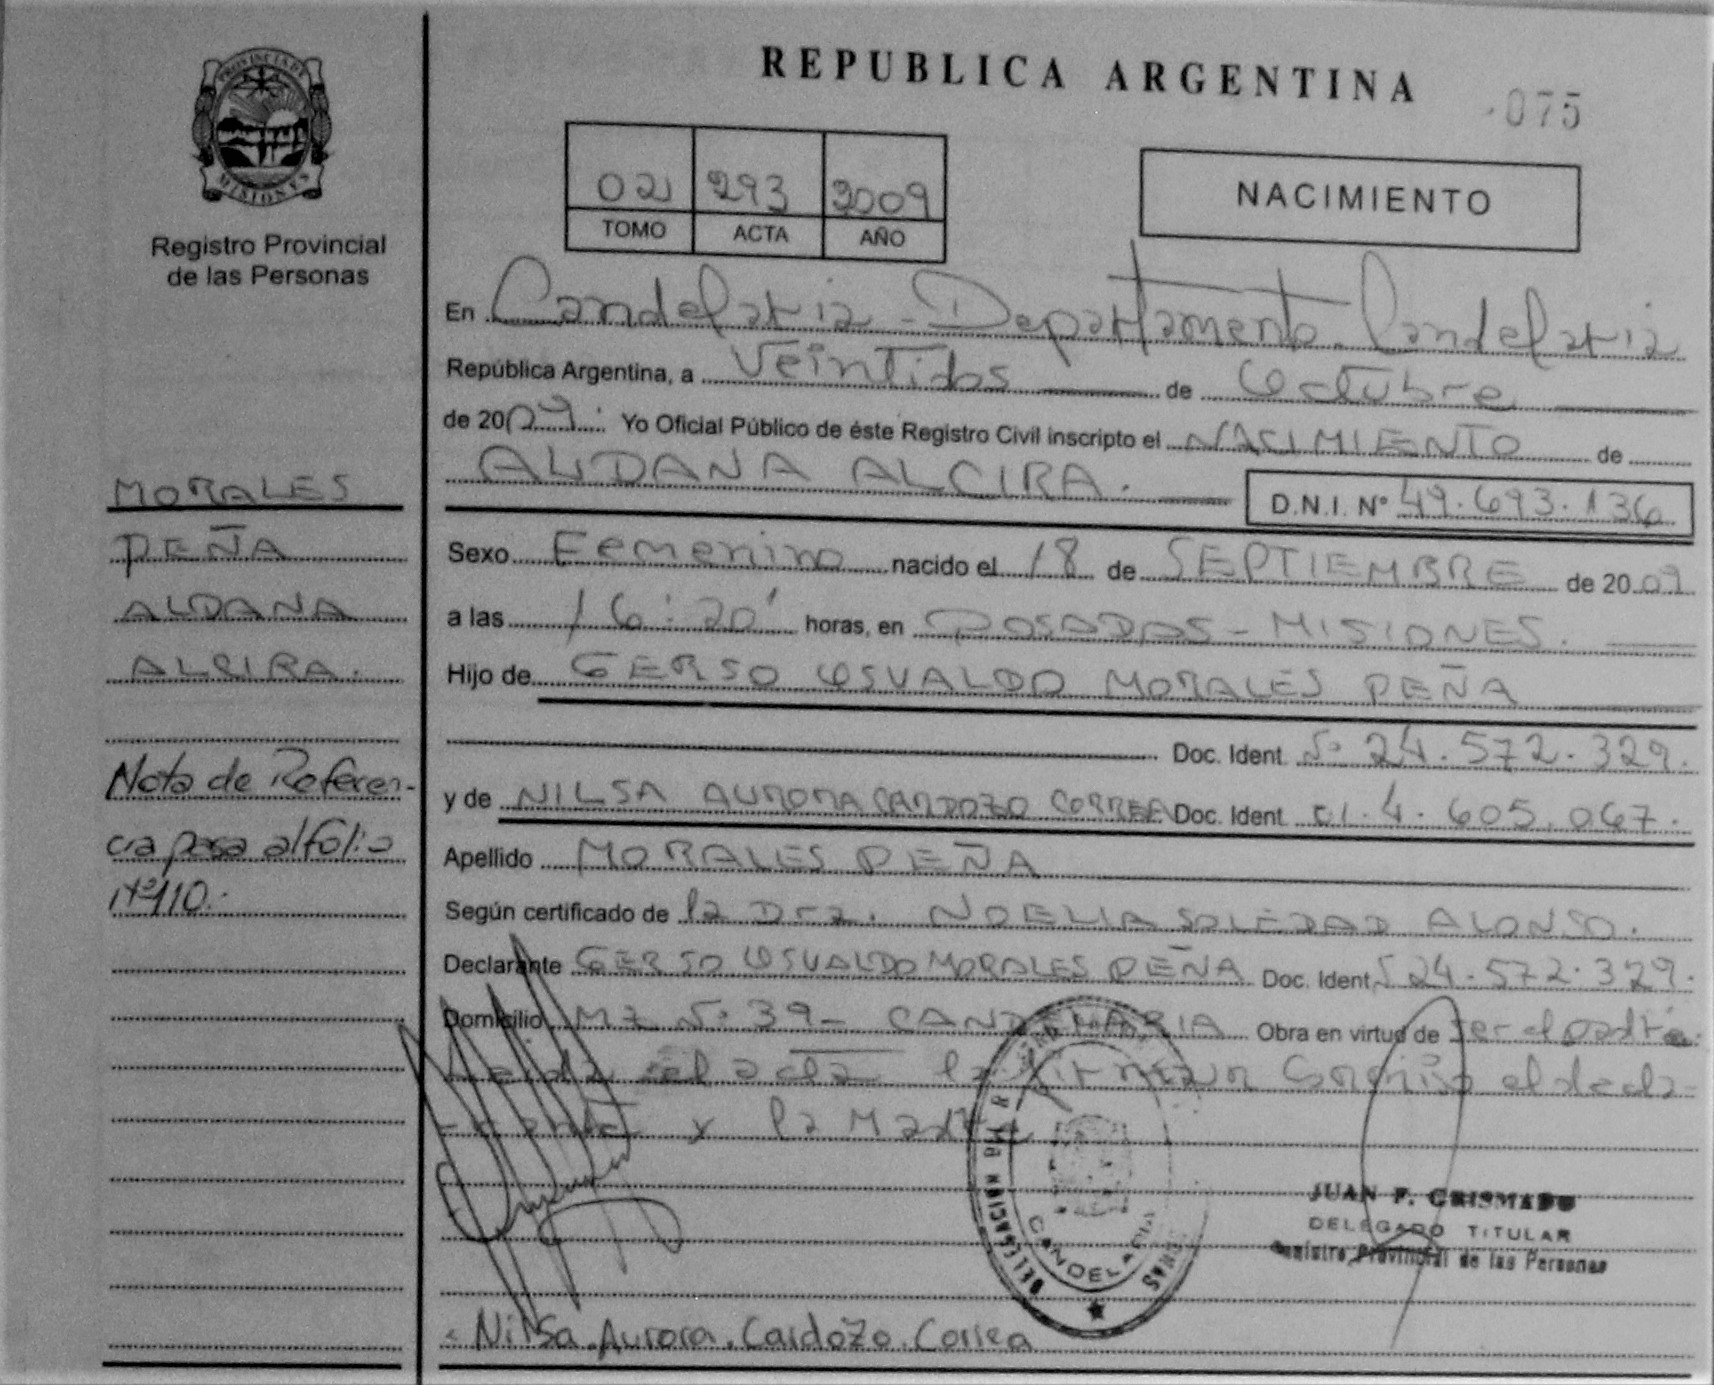 PROVINCIA DE
MISIONES
Registro Provincial
de las Personas
MORALES
PEÑA
ALDANA
ALCIRA.
Nota de Referen-
cia pasa al folio
Nº 110.
REPUBLICA ARGENTINA
075
02 293 2009
TOMO ACTA AÑO
NACIMIENTO
En Candelaria - Departamento Candelaria
República Argentina, a Veintidos de Octubre
de 2009. Yo Oficial Público de éste Registro Civil inscripto el NACIMIENTO de
ALDANA ALCIRA. D.N.I. Nº 49.693.136
Sexo Femenino nacido el 18 de SEPTIEMBRE de 2009
a las 16:20' horas, en POSADAS - MISIONES.
Hijo de GERSO OSVALDO MORALES PEÑA
Doc. Ident. Nº 24.572.329.
y de NILSA AURORA CARDOZO CORREA Doc. Ident. CI. 4.605.067.
Apellido MORALES PEÑA
Según certificado de la Dra. NOELIA SOLEDAD ALONSO.
Declarante GERSO OSVALDO MORALES PEÑA Doc. Ident. 24.572.329.
Domicilio MZ Nº 39 - CANDELARIA Obra en virtud de ser el padre.
Leida el acta la firman conmigo el decla-
rante y la Madre
CANDELARIA
JUAN F. CRISMADO
DELEGADO TITULAR
Registro Provincial de las Personas
Nilsa. Aurora. Cardozo. Correa